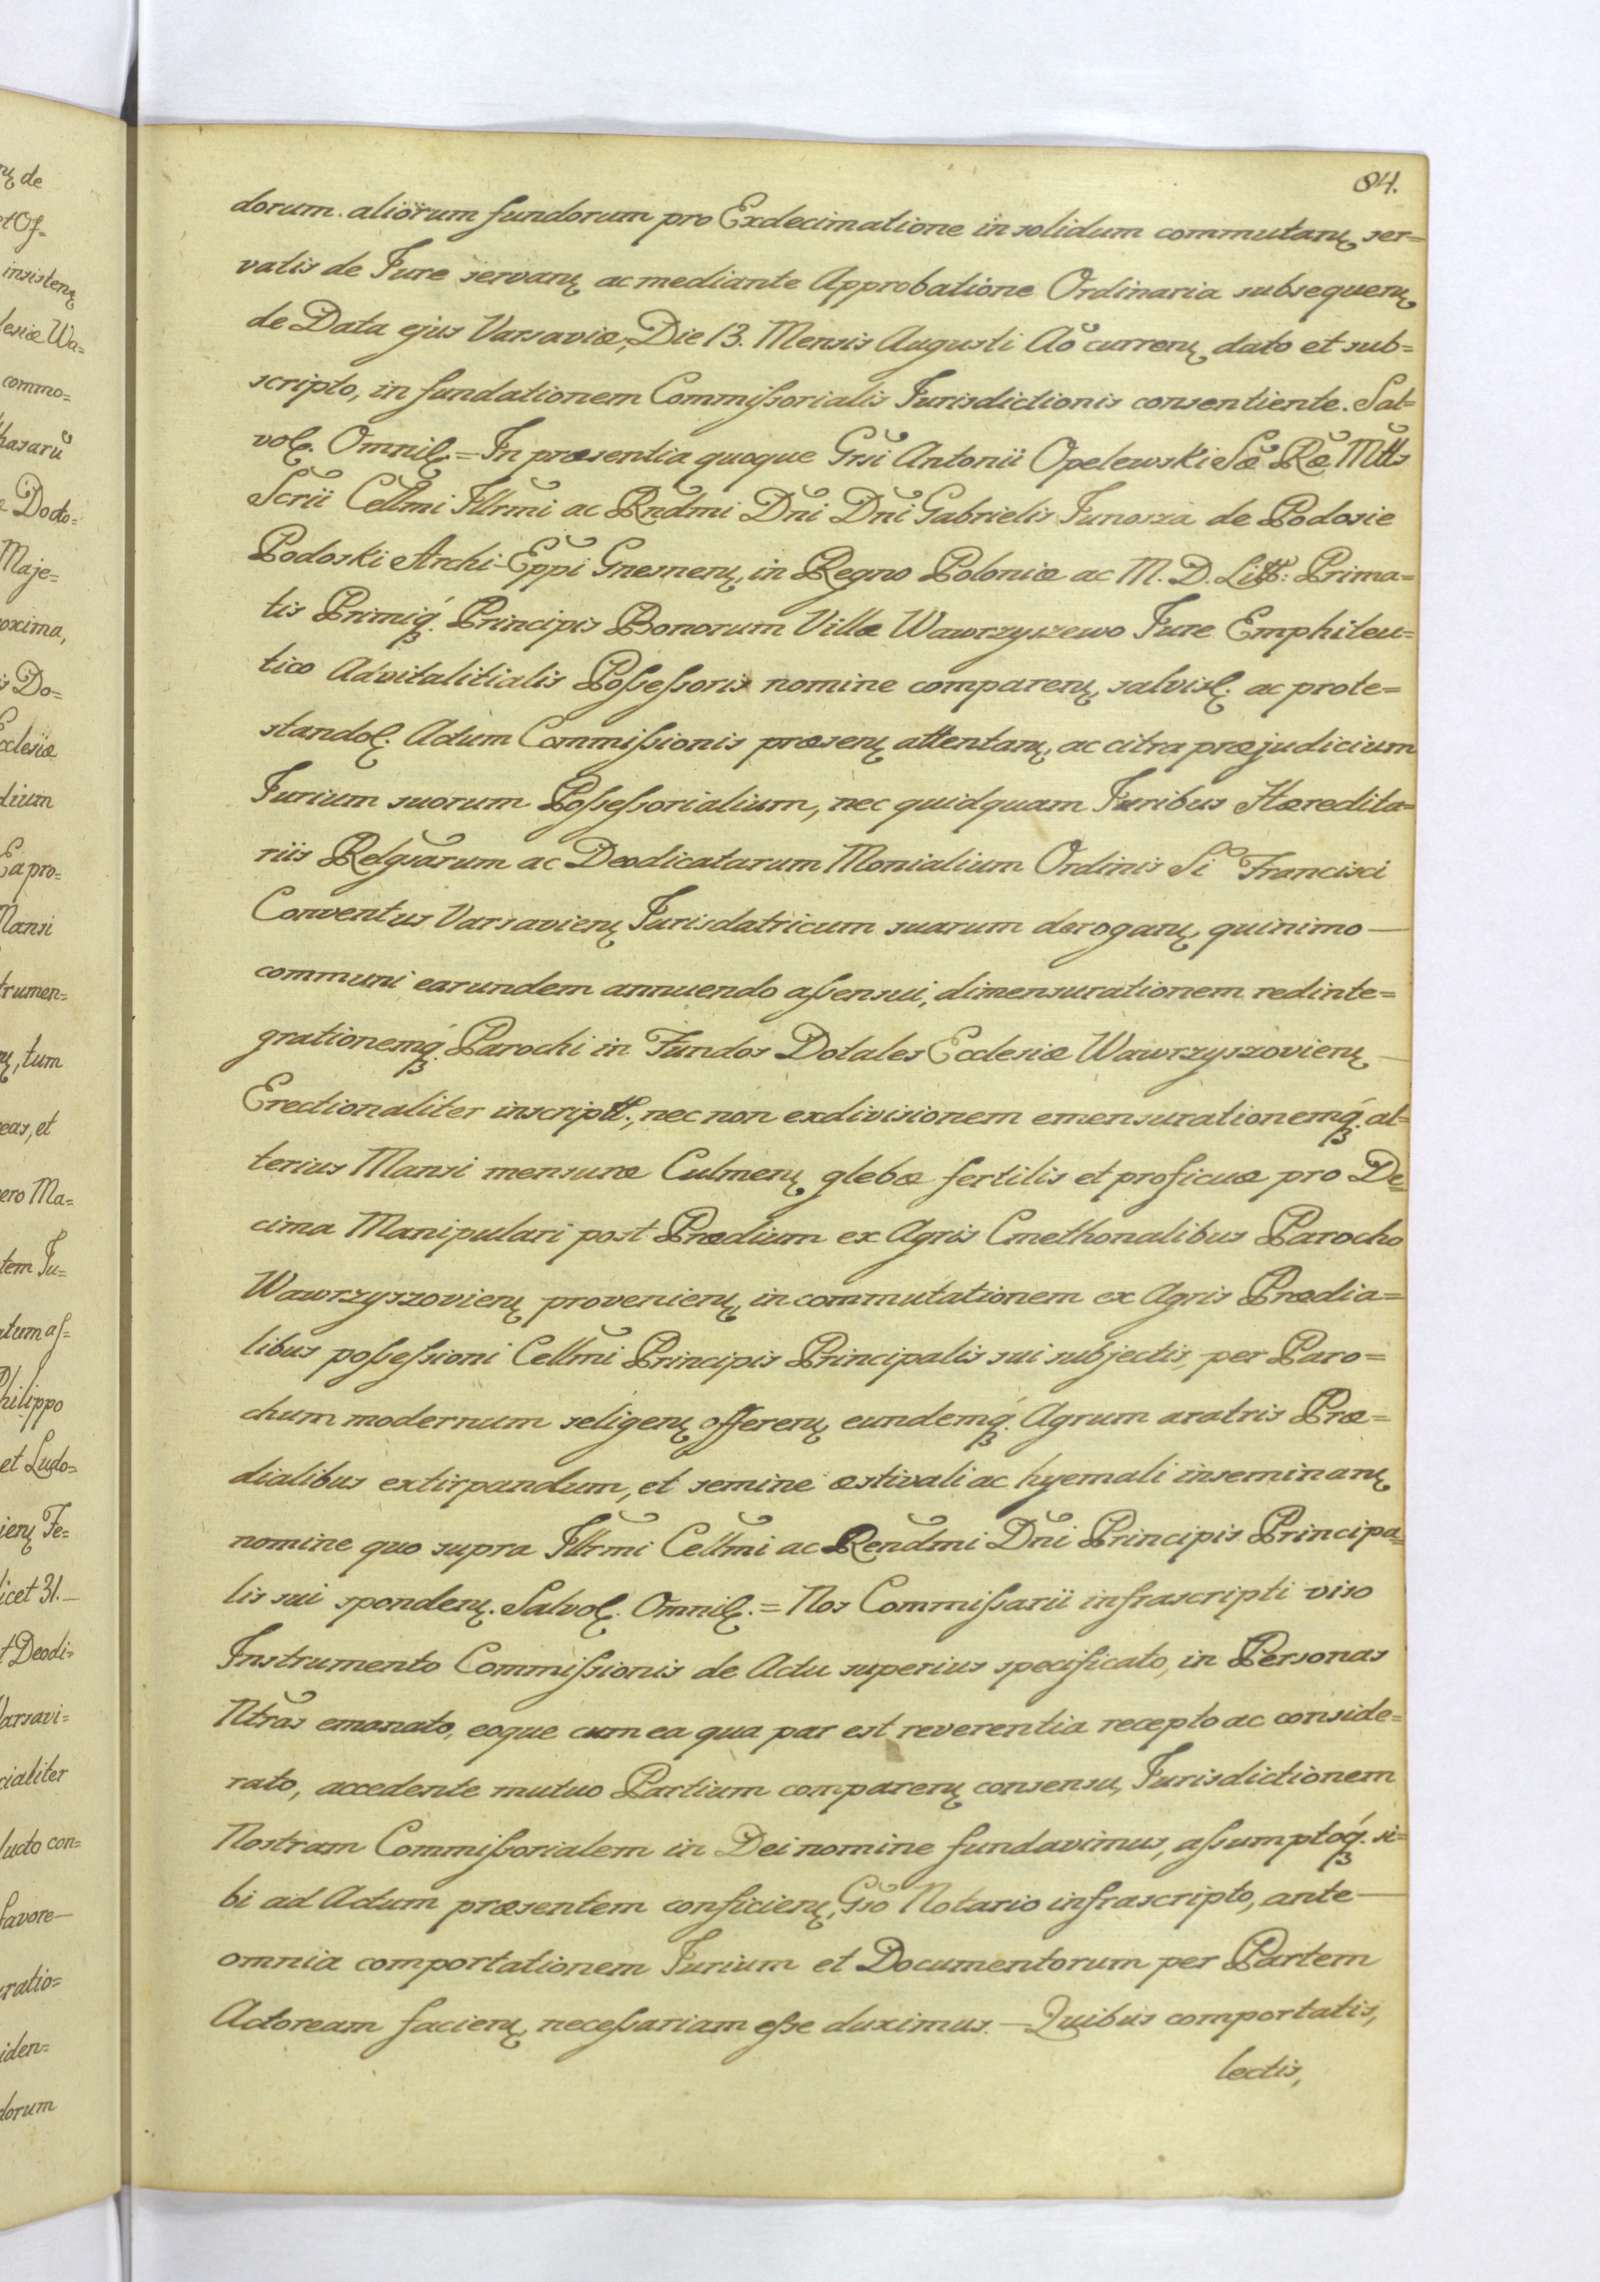 84.
dorum aliorum fundorum pro Exdecimatione in solidum commutanꝝ ser=
vatis de Jure servanꝝ ac mediante Approbatione Ordinaria subsequenꝝ
de Data ejus Varsaviæ, Die 13. Mensis Augusti Aō currenꝝ dato et sub=
scripto, in fundationem Commißorialis Jurisdictionis consentiente. Sal=
voꝗ. Omniꝗ. = In præsentia quoque Grsi Antonii Opelewski Sæ Ræ Mtts
Scrii Cellmi Illrmi ac Rndmi Dni Dni Gabrielis Junosza de Podosie
Podoski Archi-Eppi Gnesnenꝝ, in Regno Poloniæ ac M. D. Litt: Prima=
tis Primiq́ʒ Principis Bonorum Villæ Wawrzyszewo Jure Emphiteu=
tico Advitalitialis Poßeßoris nomine comparenꝝ, salvisꝗ. ac prote=
standoꝗ. Actum Commißionis præsenꝝ attentanꝝ, ac citra præjudicium
Jurium suorum Poßeßorialium, nec quidquam Juribus Hæredita=
riis Relgsarum ac Deodicatarum Monialium Ordinis Si Francisci
Conventus Varsavienꝝ Jurisdatricum suarum deroganꝝ, quinimo —
communi earundem annuendo aßensui, dimensurationem redinte=
grationemq́ʒ Parochi in Fundos Dotales Ecclesiæ Wawrzyszovienꝝ —
Erectionaliter inscriptt:, nec non exdivisionem emensurationemq́ʒ al=
terius Mansi mensuræ Culmenꝝ glebæ fertilis et proficuæ pro De=
cima Manipulari post Prædium ex Agris Cmethonalibus Parocho
Wawrzyszovienꝝ provenienꝝ, in commutationem ex Agris Prædia=
libus poßeßioni Cellmi Principis Principalis sui subjectis, per Paro=
chum modernum seligenꝝ offerenꝝ eundemq́ʒ Agrum aratris Præ=
dialibus extirpandum, et semine æstivali ac hyemali inseminanꝝ
nomine quo supra Illrmi Cellmi ac Rendmi Dni Principis Principa=
lis sui spondenꝝ. Salvoꝗ. Omniꝗ. = Nos Commißarii infrascripti viso
Instrumento Commißionis de Actu superius specificato, in Personas
Ntras emanato, eoque cum ea qua par est reverentia recepto ac conside=
rato, accedente mutuo Partium comparenꝝ consensu, Jurisdictionem
Nostram Commißorialem in Dei nomine fundavimus, aßumptoq́ʒ si=
bi ad Actum præsentem conficienꝝ, Gso Notario infrascripto, ante —
omnia comportationem Jurium et Documentorum per Partem
Actoream facienꝝ, neceßariam eße duximus. — Quibus comportatis,
lectis,